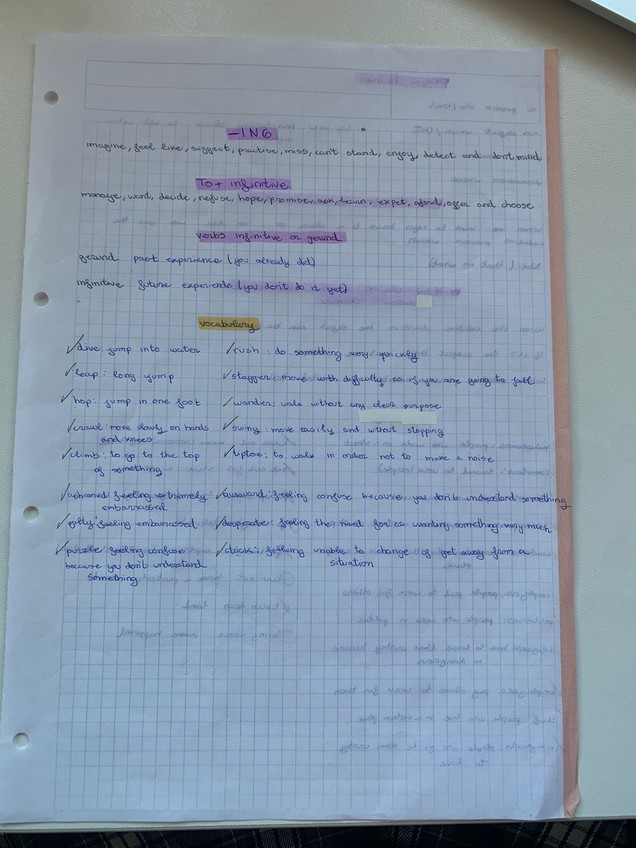 -ING
imagine, feel like, suggest, practise, miss, can't stand, enjoy, detect and don't mind
To + infinitive
manage, want, decide, refuse, hope, promise, ask, learn, expet, aford, offer and choose
verbs infinitive or gerund
gerund past experience (you already did)
infinitive future experience (you don't do it yet)
vocabulary
✓dive: jump into water
✓leap: long jump
✓hop: jump in one foot
✓crawl: move slowly on hands
and knees
✓climb: to go to the top
of something
✓ashamed: feeling extremely
embarrassed
✓guilty: feeling embarrassed
✓puzzle: feeling confuse
because you don't understand
something
✓rush: do something very quickly
✓stagger: move with difficulty as if you are going to fall
✓wander: walk without any clear purpose
✓swing: move easily and without stopping
to walk in order not to make a noise
✓awkward: feeling confuse because you don't understand something
✓desperate: feeling the need for or wanting something very much
feeling unable to change of get away from a
situation